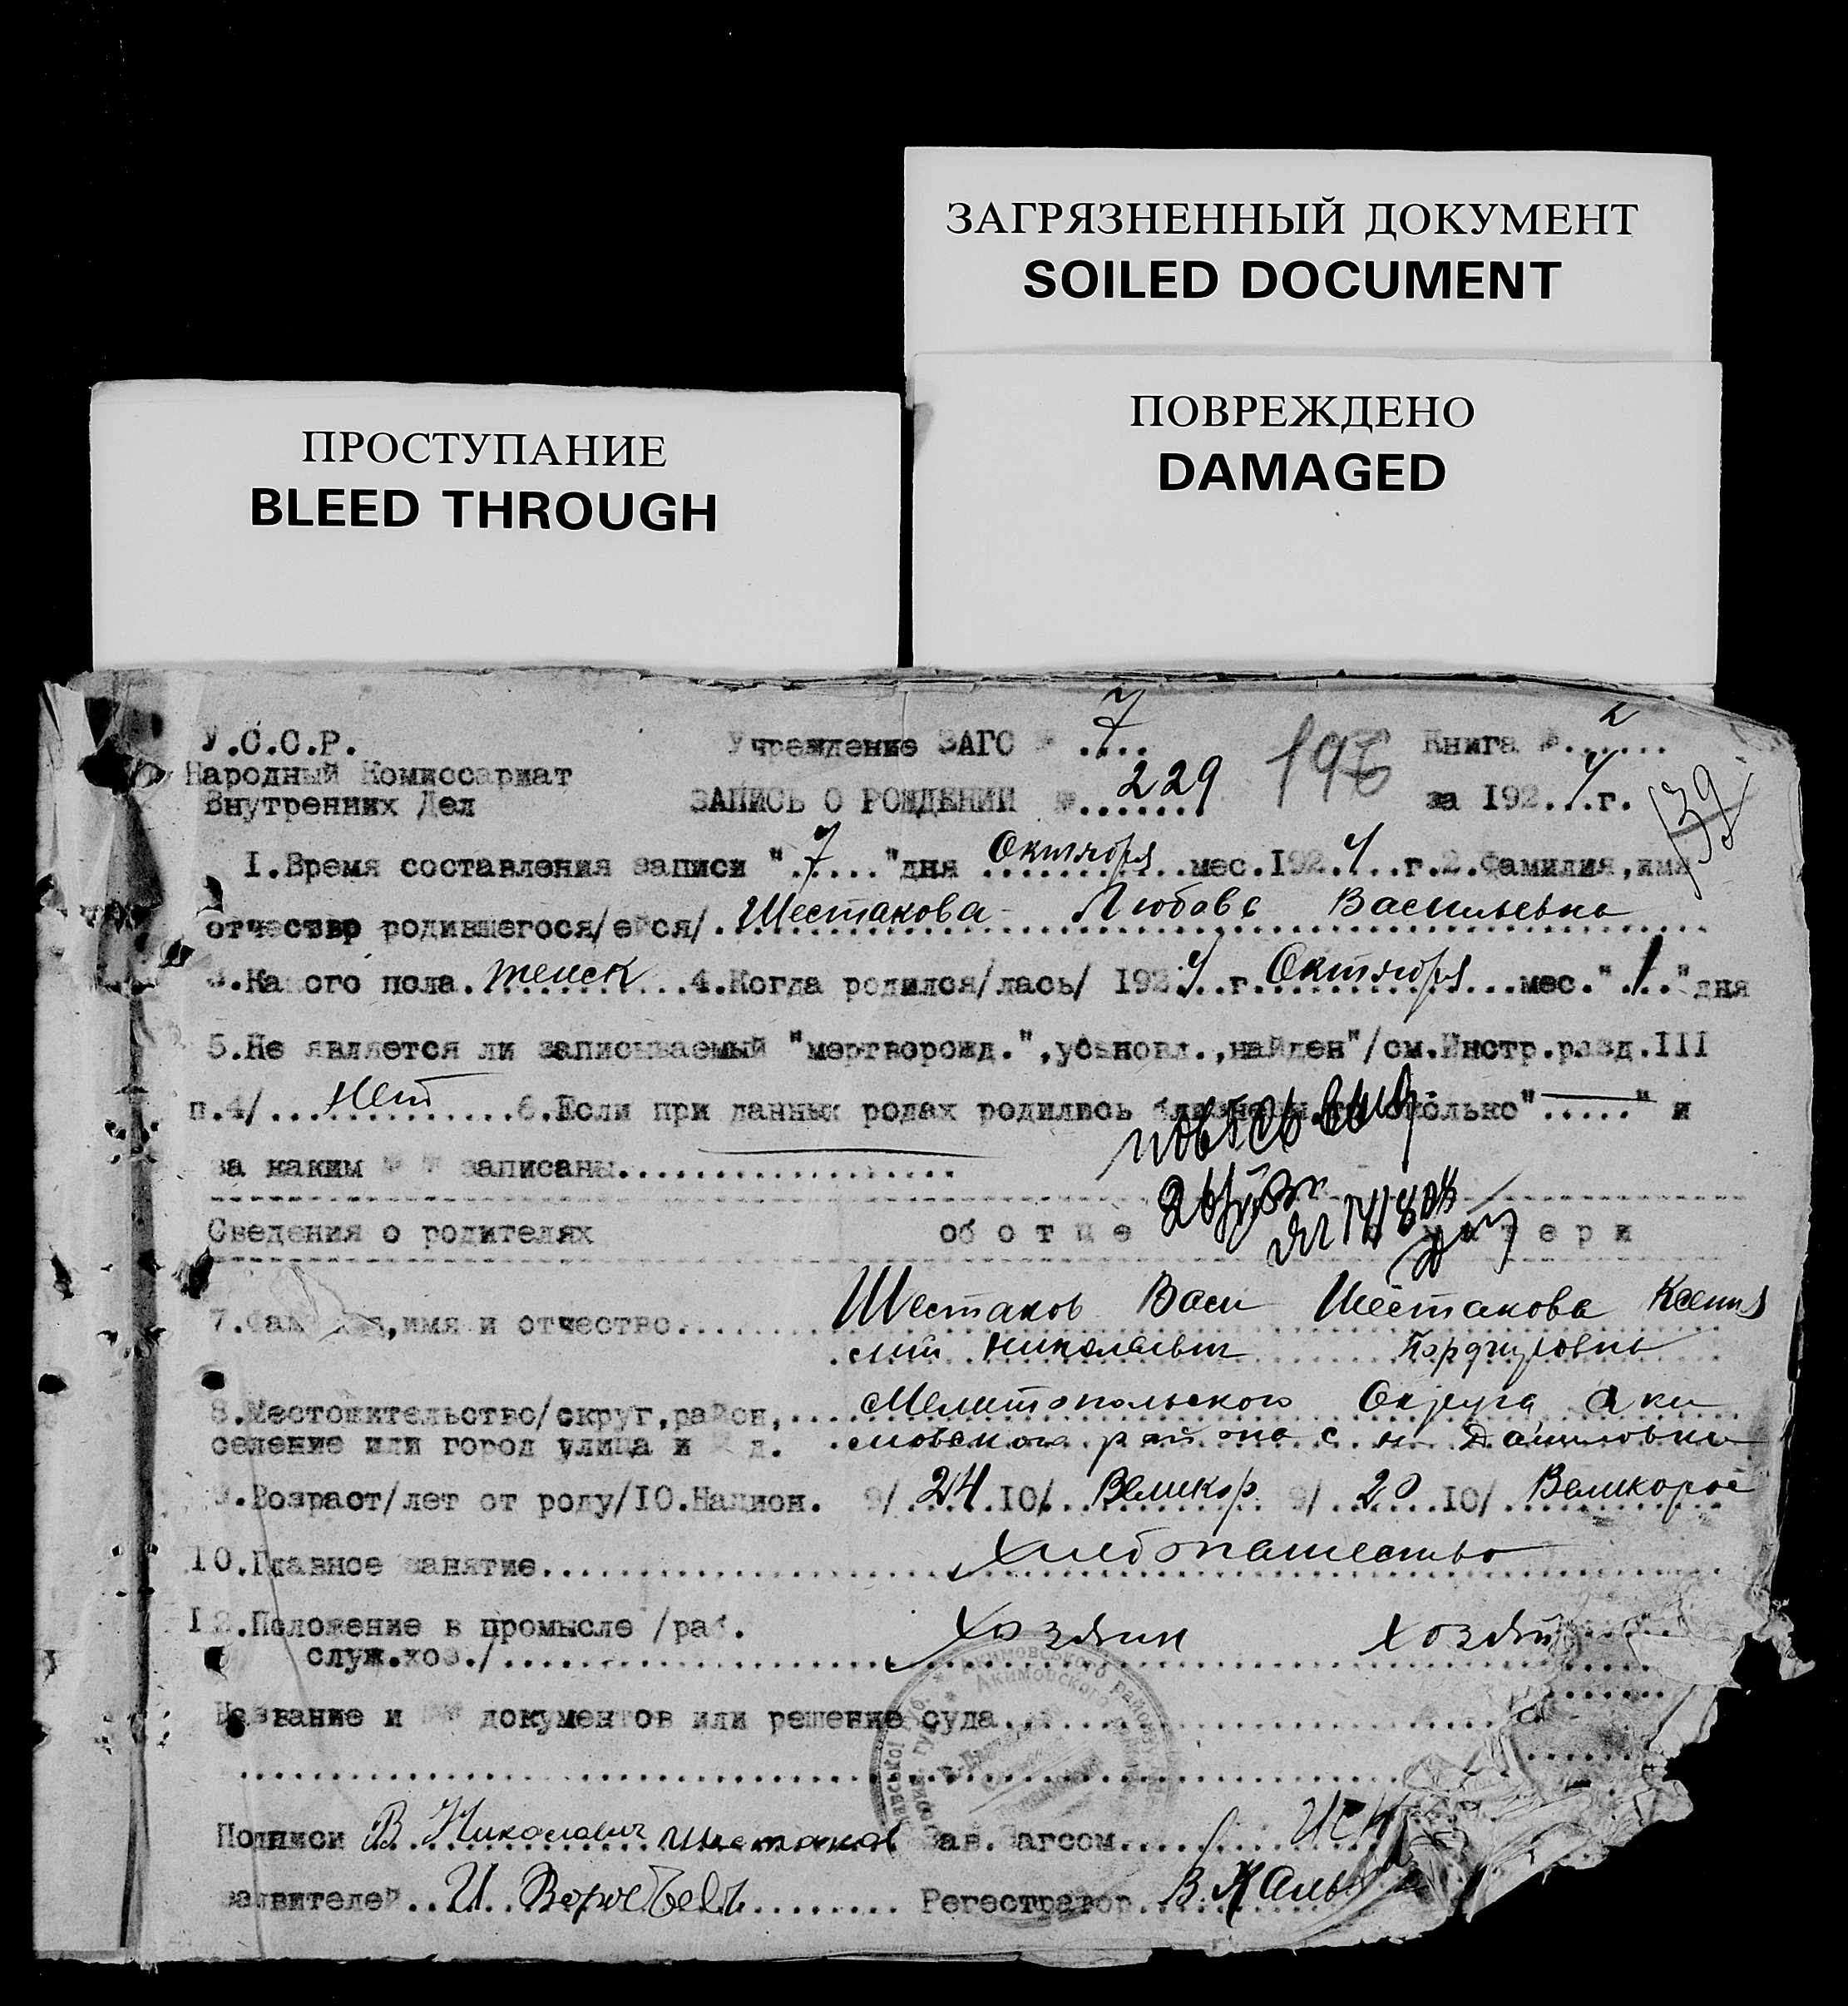 ЗАГРЯЗНЕННЫЙ ДОКУМЕНТ
SOILED DOCUMENT
ПРОСТУПАНИЕ
BLEED THROUGH
ПОВРЕЖДЕНО
DAMAGED
У.С.С.Р. Учреждение ЗАГС № 7 Книга № 2
Народный Комиссариат
Внутренних Дел ЗАПИСЬ О РОЖДЕНИИ № 229 196 за 192 4 г. 139
1.Время составления записи "7"дня Октября мес.192 4 г.2.Фамилия,имя
отчество родившегося/ейся/ Шестакова Любовь Васильевна
3.Какого пола женск 4.Когда родился/лась/ 192 4 г. Октября мес."1"дня
5.Не является ли записываемый "мертворожд.",усыновл.,найден"/см.Инстр.разд.III
п.4/ нет 6.Если при данных родах родились сколько"—" и
за каким № № записаны
Сведения о родителях об о т ц е м а т е р и
7.Фамилия,имя и отчество Шестаков Васи Шестакова Ксения
лий Николаевич Порфировна
8.Местожительство/округ,район, Мелитопольского Округа Аки
селение или город улица и № д. мовского района с. Даниловки
9.Возраст/лет от роду/10.Национ. 9/ 24 10/ Великор 9/ 20 10/ Великорос
10.Главное занятие Хлебопашество
12.Положение в промысле /раб.
служ.хоз./ Хозяин хозяй
Название и №№ документов или решение суда
Подписи В Николаевич Шестаков Зав. Загсом
заявителей И. Регестратор В.